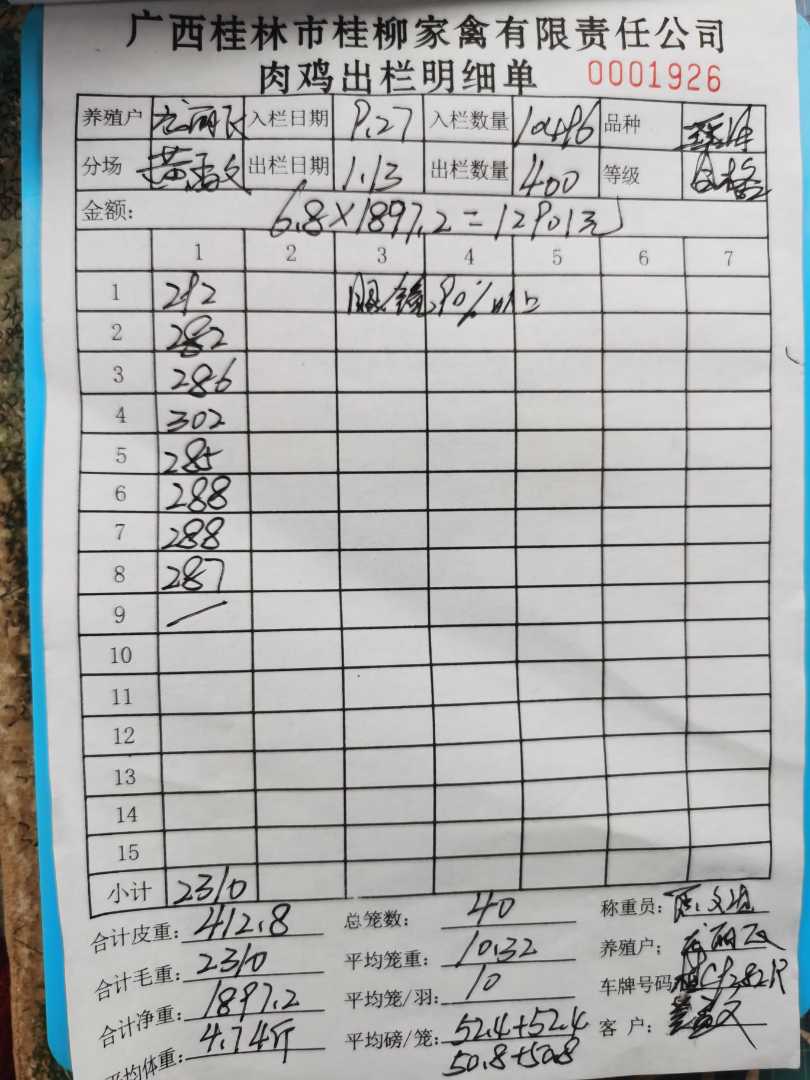 广西桂林市桂柳家禽有限责任公司
肉鸡出栏明细单 0001926
养殖户 入栏日期 9.27 入栏数量 10496 品种
分场 黄孟文 出栏日期 1.13 出栏数量 400 等级 合格
金额: 6.8×1897.2=12901元
1 2 3 4 5 6 7
1 292 90%以上
2 282
3 286
4 302
5 285
6 288
7 288
8 287
9 /
10
11
12
13
14
15
小计 2310
合计皮重: 412.8 总笼数: 40 称重员:
合计毛重: 2310 平均笼重: 10.32 养殖户:
合计净重: 1897.2 平均笼/羽: 10 车牌号码
平均体重: 4.74斤 平均磅/笼: 52.4+52.4 客户: 黄孟文
50.8+50.8